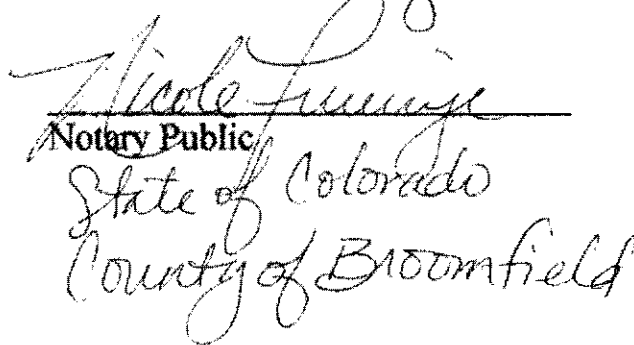 Nicole
Notary Public
State of Colorado
County of Broomfield